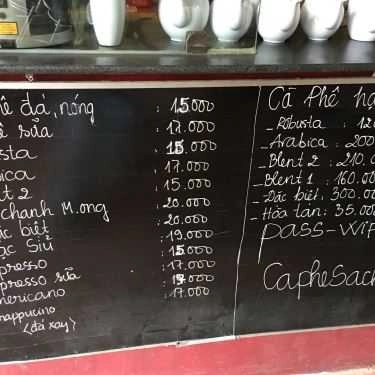 ê đá, nóng : 15.000
ê sữa : 17.000
sta : 15.000
ica : 17.000
t 2 : 15.000
chanh M.ong : 20.000
ặc biệt : 20.000
ạc siủ : 19.000
presso : 15.000
presso sữa : 17.000
mericano : 19.000
rappucino : 17.000
(đá xay)
Cà Phê hạ
_ Robusta : 12
_ Arabica : 200
_ Blent 2 : 210.0
_ Blent 1 : 160.00
_ Đặc biệt : 300.00
_ Hòa tan : 35.00
PASS-WIF
Caphesach